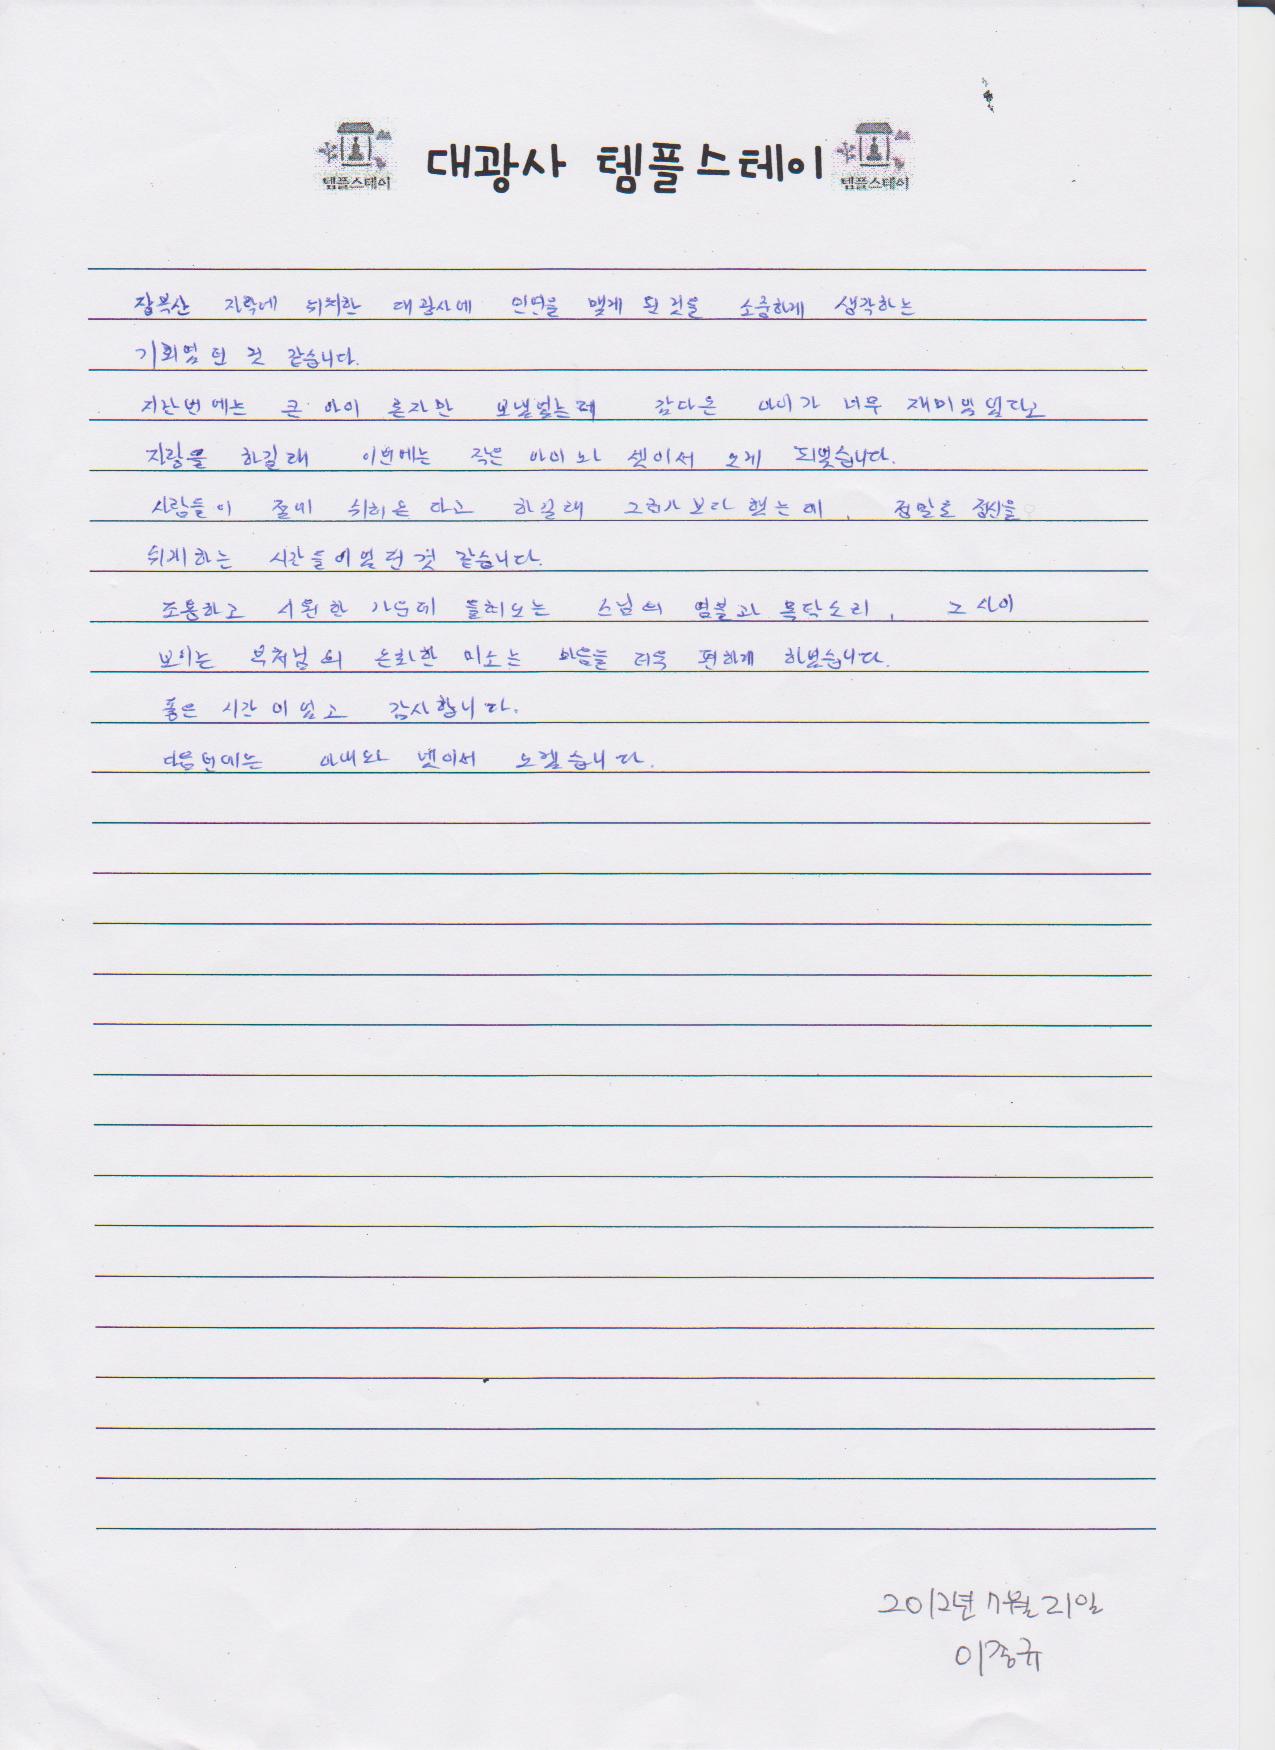 템플스테이 대광사 템플스테이 템플스테이
장복산 자락에 위치한 대광사에 인연을 맺게 된것을 소중하게 생각하는
기회였던 것 같습니다.
지난번에는 큰 아이 혼자만 보냈었는데 갔다온 아이가 너무 재미있었다고
자랑을 하길래 이번에는 작은 아이와 셋이서 오게 되었습니다.
사람들이 절에 쉬러온다고 하길래 그런가보다 했는데, 정말로 정신을
쉬게하는 시간들이었던것 같습니다.
조용하고 시원한 가운데 들려오는 스님의 염불과 목탁소리, 그 사이
보이는 부처님의 온화한 미소는 마음을 더욱 편하게 하였습니다.
좋은 시간이었고 감사합니다.
다음번에는 아내와 넷이서 오겠습니다.
2012년 7월 21일
이종규